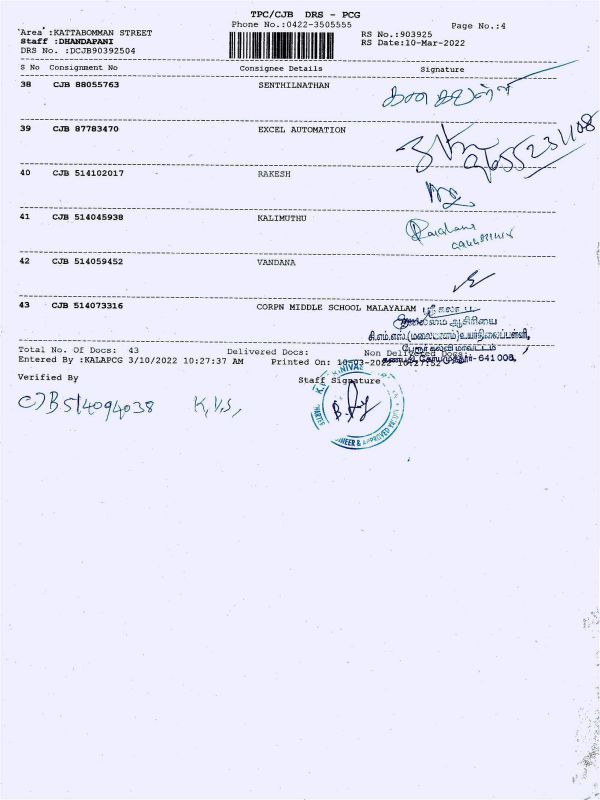 TPC/CJB DRS - PCG
Phone No.:0422-3505555
Page No.:4
Area :KATTABOMMAN STREET
Staff :DHANDAPANI
DRS No. :DCJB90392504
RS No.:903925
RS Date:10-Mar-2022
S No Consignment No Consignee Details Signature
38 CJB 88055763 SENTHILNATHAN
39 CJB 87783470 EXCEL AUTOMATION
9655231108
40 CJB 514102017 RAKESH
41 CJB 514045938 KALIMUTHU
42 CJB 514059452 VANDANA
43 CJB 514073316 CORPN MIDDLE SCHOOL MALAYALAM
தலைமை ஆசிரியை
சி.எம்.எஸ்.(மலையாளம்) உயர்நிலைப்பள்ளி,
Total No. Of Docs: 43 Delivered Docs: Non Delivered Docs:
641 008.
Entered By :KALAPCG 3/10/2022 10:27:37 AM Printed On: 10-03-2022 10:27:52
Verified By Staff Signature
CJB514094038 K.V.S,